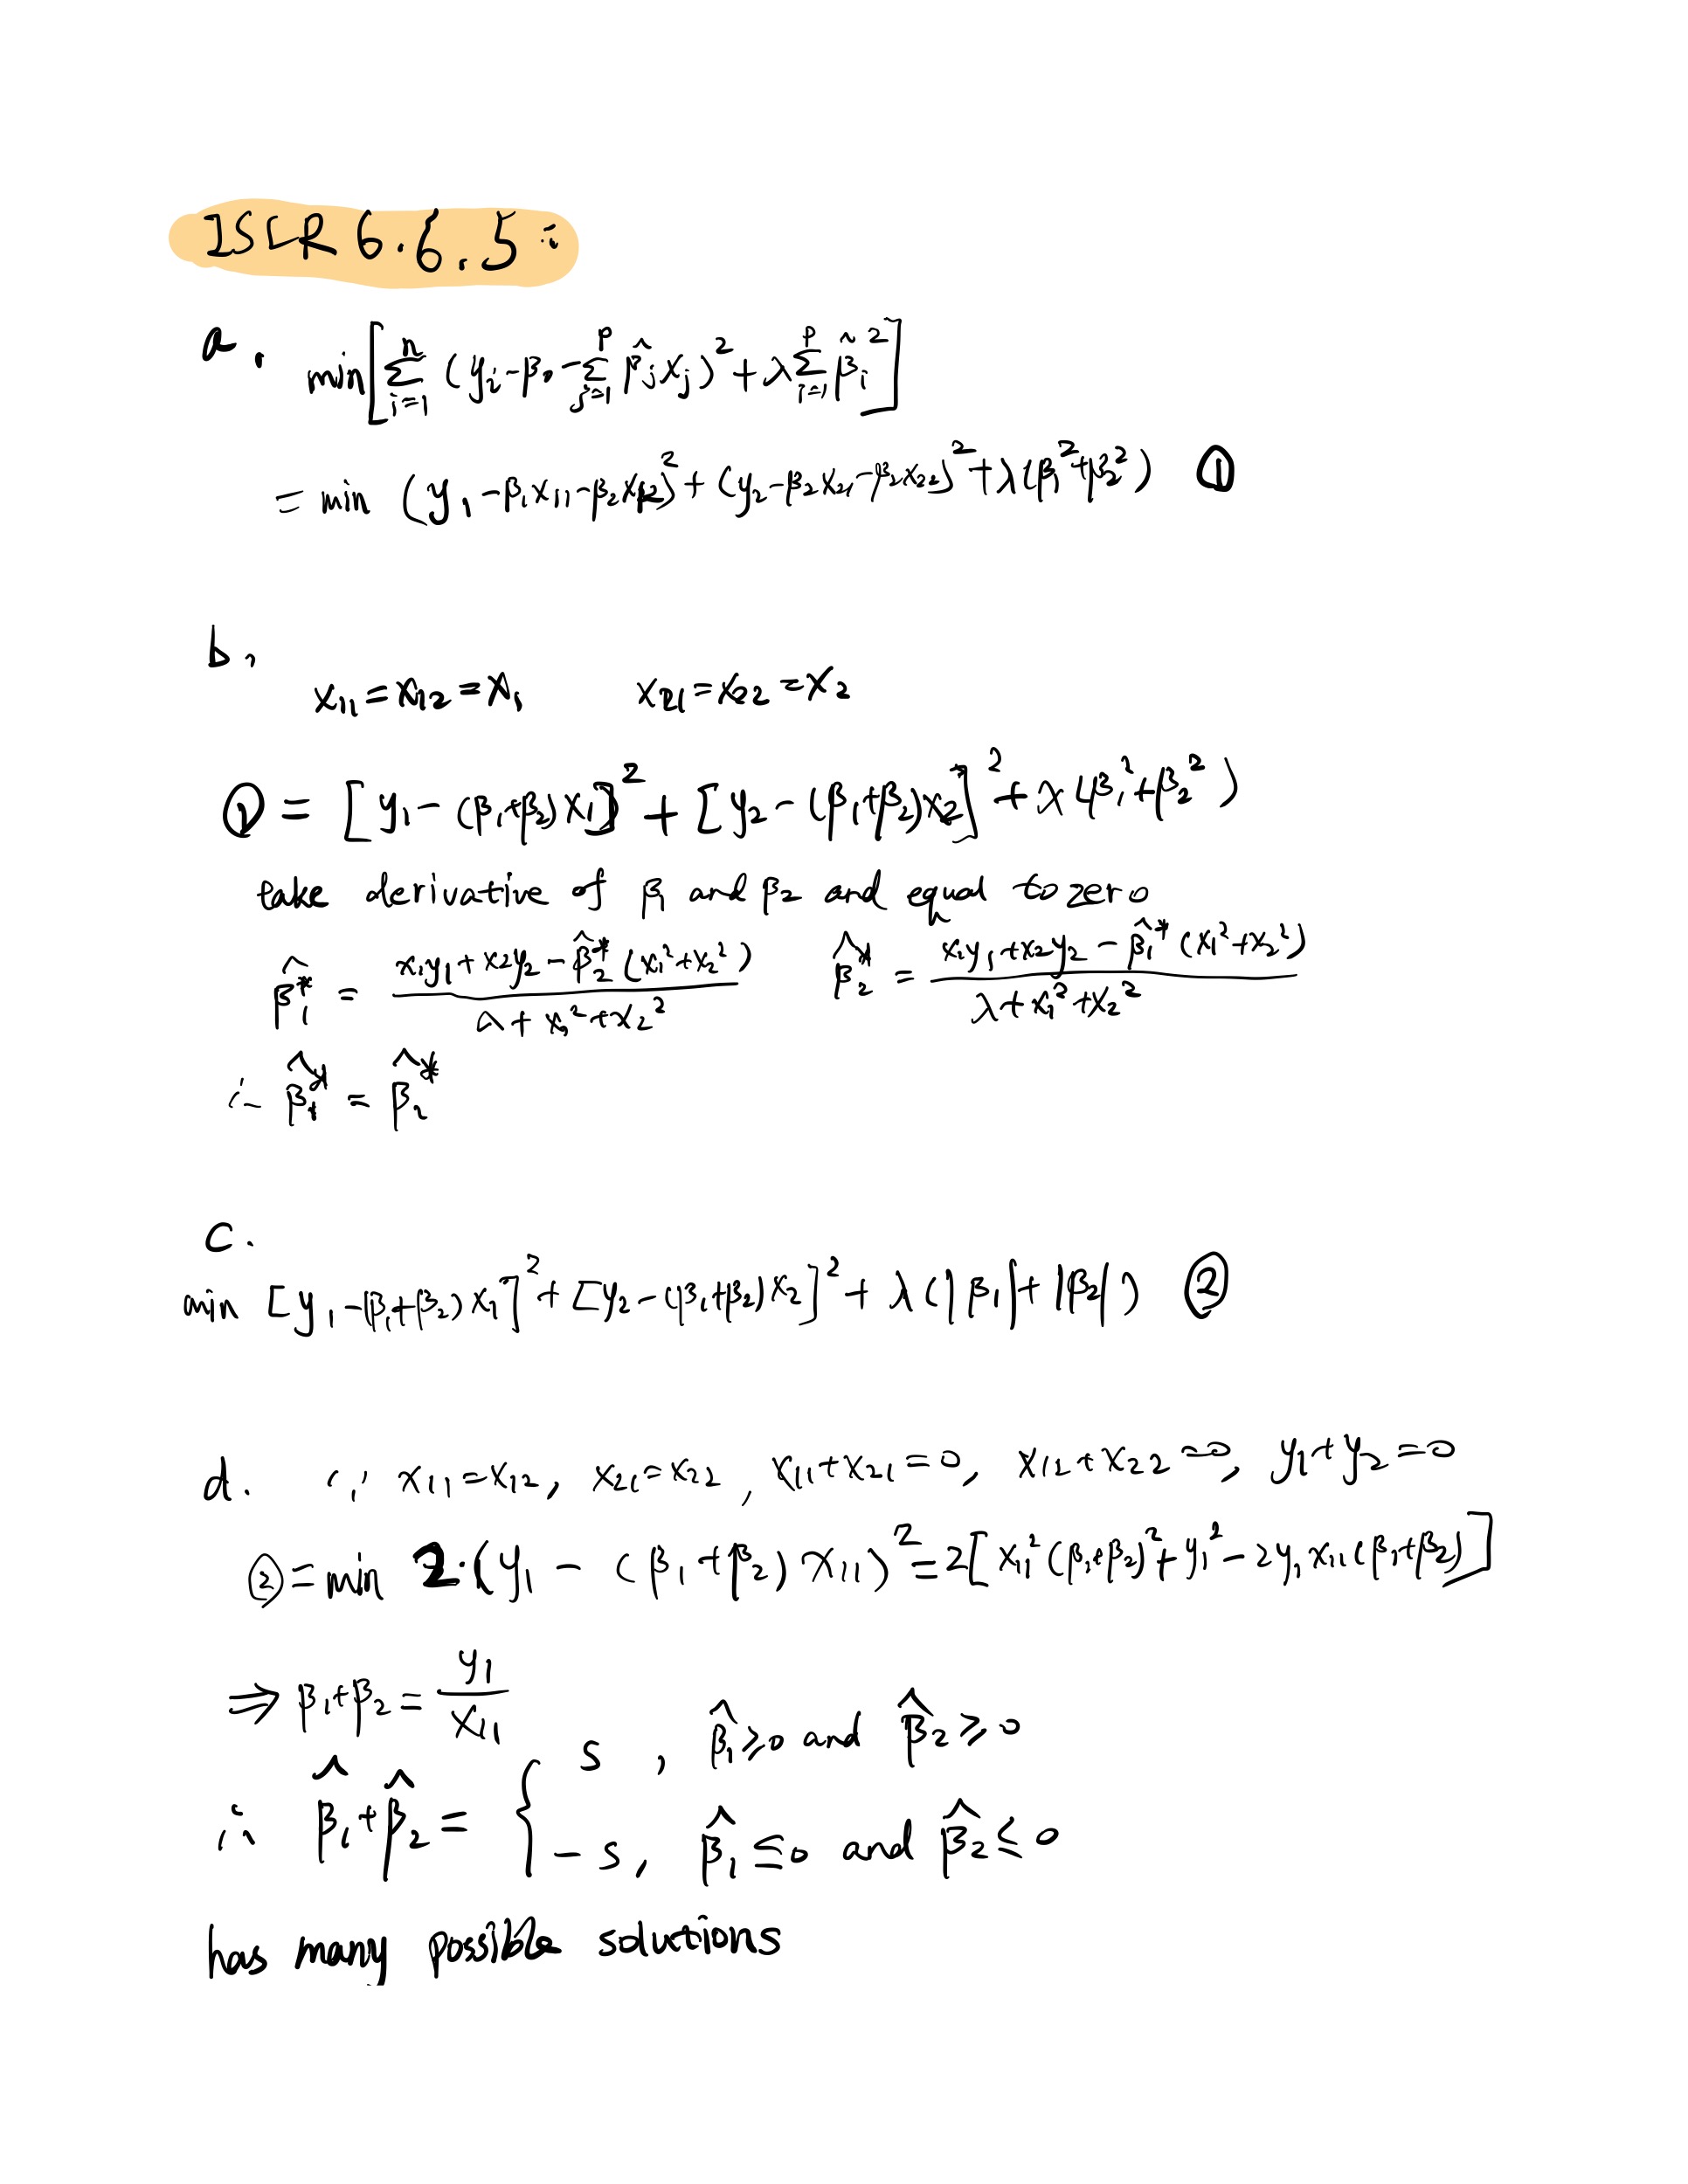 ISLR 6.6.5:
a. min[∑_{i=1}^{n} (y_i - β_0 - ∑_{j=1}^{p} β̂_j x_j)^2 + λ ∑_{i=1}^{p} β̂_i^2]
= min (y_1 - β_1 x_11 - β_2 x_12)^2 + (y_2 - β_2 x_21 - β_2 x_22)^2 + λ(β_1^2 + β_2^2) ①
b.
x_11 = x_12 = x_1 x_21 = x_22 = x_2
① = [y_1 - (β_1 + β_2) x_1]^2 + [y_2 - (β_1 + β_2) x_2]^2 + λ(β_1^2 + β_2^2)
take derivative of β_1 and β_2 and equal to zero
β̂_1^* = (x_1 y_1 + x_2 y_2 - β̂_2^* (x_1^2 + x_2^2)) / (λ + x_1^2 + x_2^2) β̂_2^* = (x_1 y_1 + x_2 y_2 - β̂_1^* (x_1^2 + x_2^2)) / (λ + x_1^2 + x_2^2)
∴ β̂_1^* = β̂_2^*
c.
min [y_1 - (β_1 + β_2) x_1]^2 + [y_2 - (β_1 + β_2) x_2]^2 + λ(|β_1| + |β_2|) ②
d. ∵ x_11 = x_12, x_21 = x_22, x_11 + x_21 = 0, x_12 + x_22 = 0, y_1 + y_2 = 0
② = min 2·(y_1 - (β_1 + β_2) x_11)^2 = 2[x_11^2 (β_1 + β_2)^2 + y_1^2 - 2 y_1 x_11 (β_1 + β_2)]
⇒ β_1 + β_2 = y_1 / x_11
∴ β̂_1 + β̂_2 = { s, β̂_1 ≥ 0 and β̂_2 ≥ 0
-s, β̂_1 ≤ 0 and β̂_2 ≤ 0
has many possible solutions